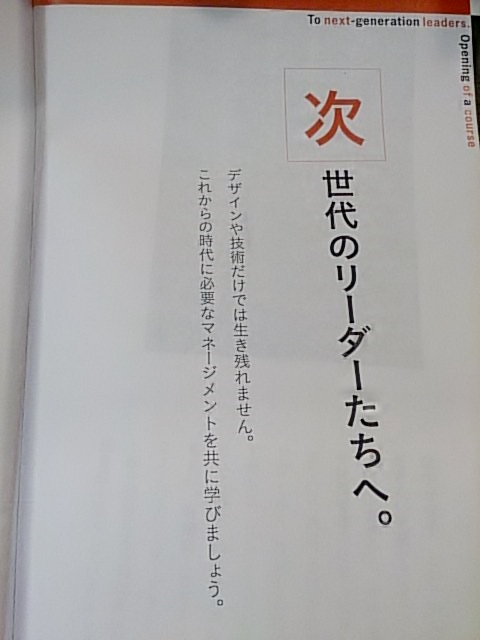 To next-generation leaders.
Opening of a course
次世代のリーダーたちへ。
デザインや技術だけでは生き残れません。
これからの時代に必要なマネージメントを共に学びましょう。